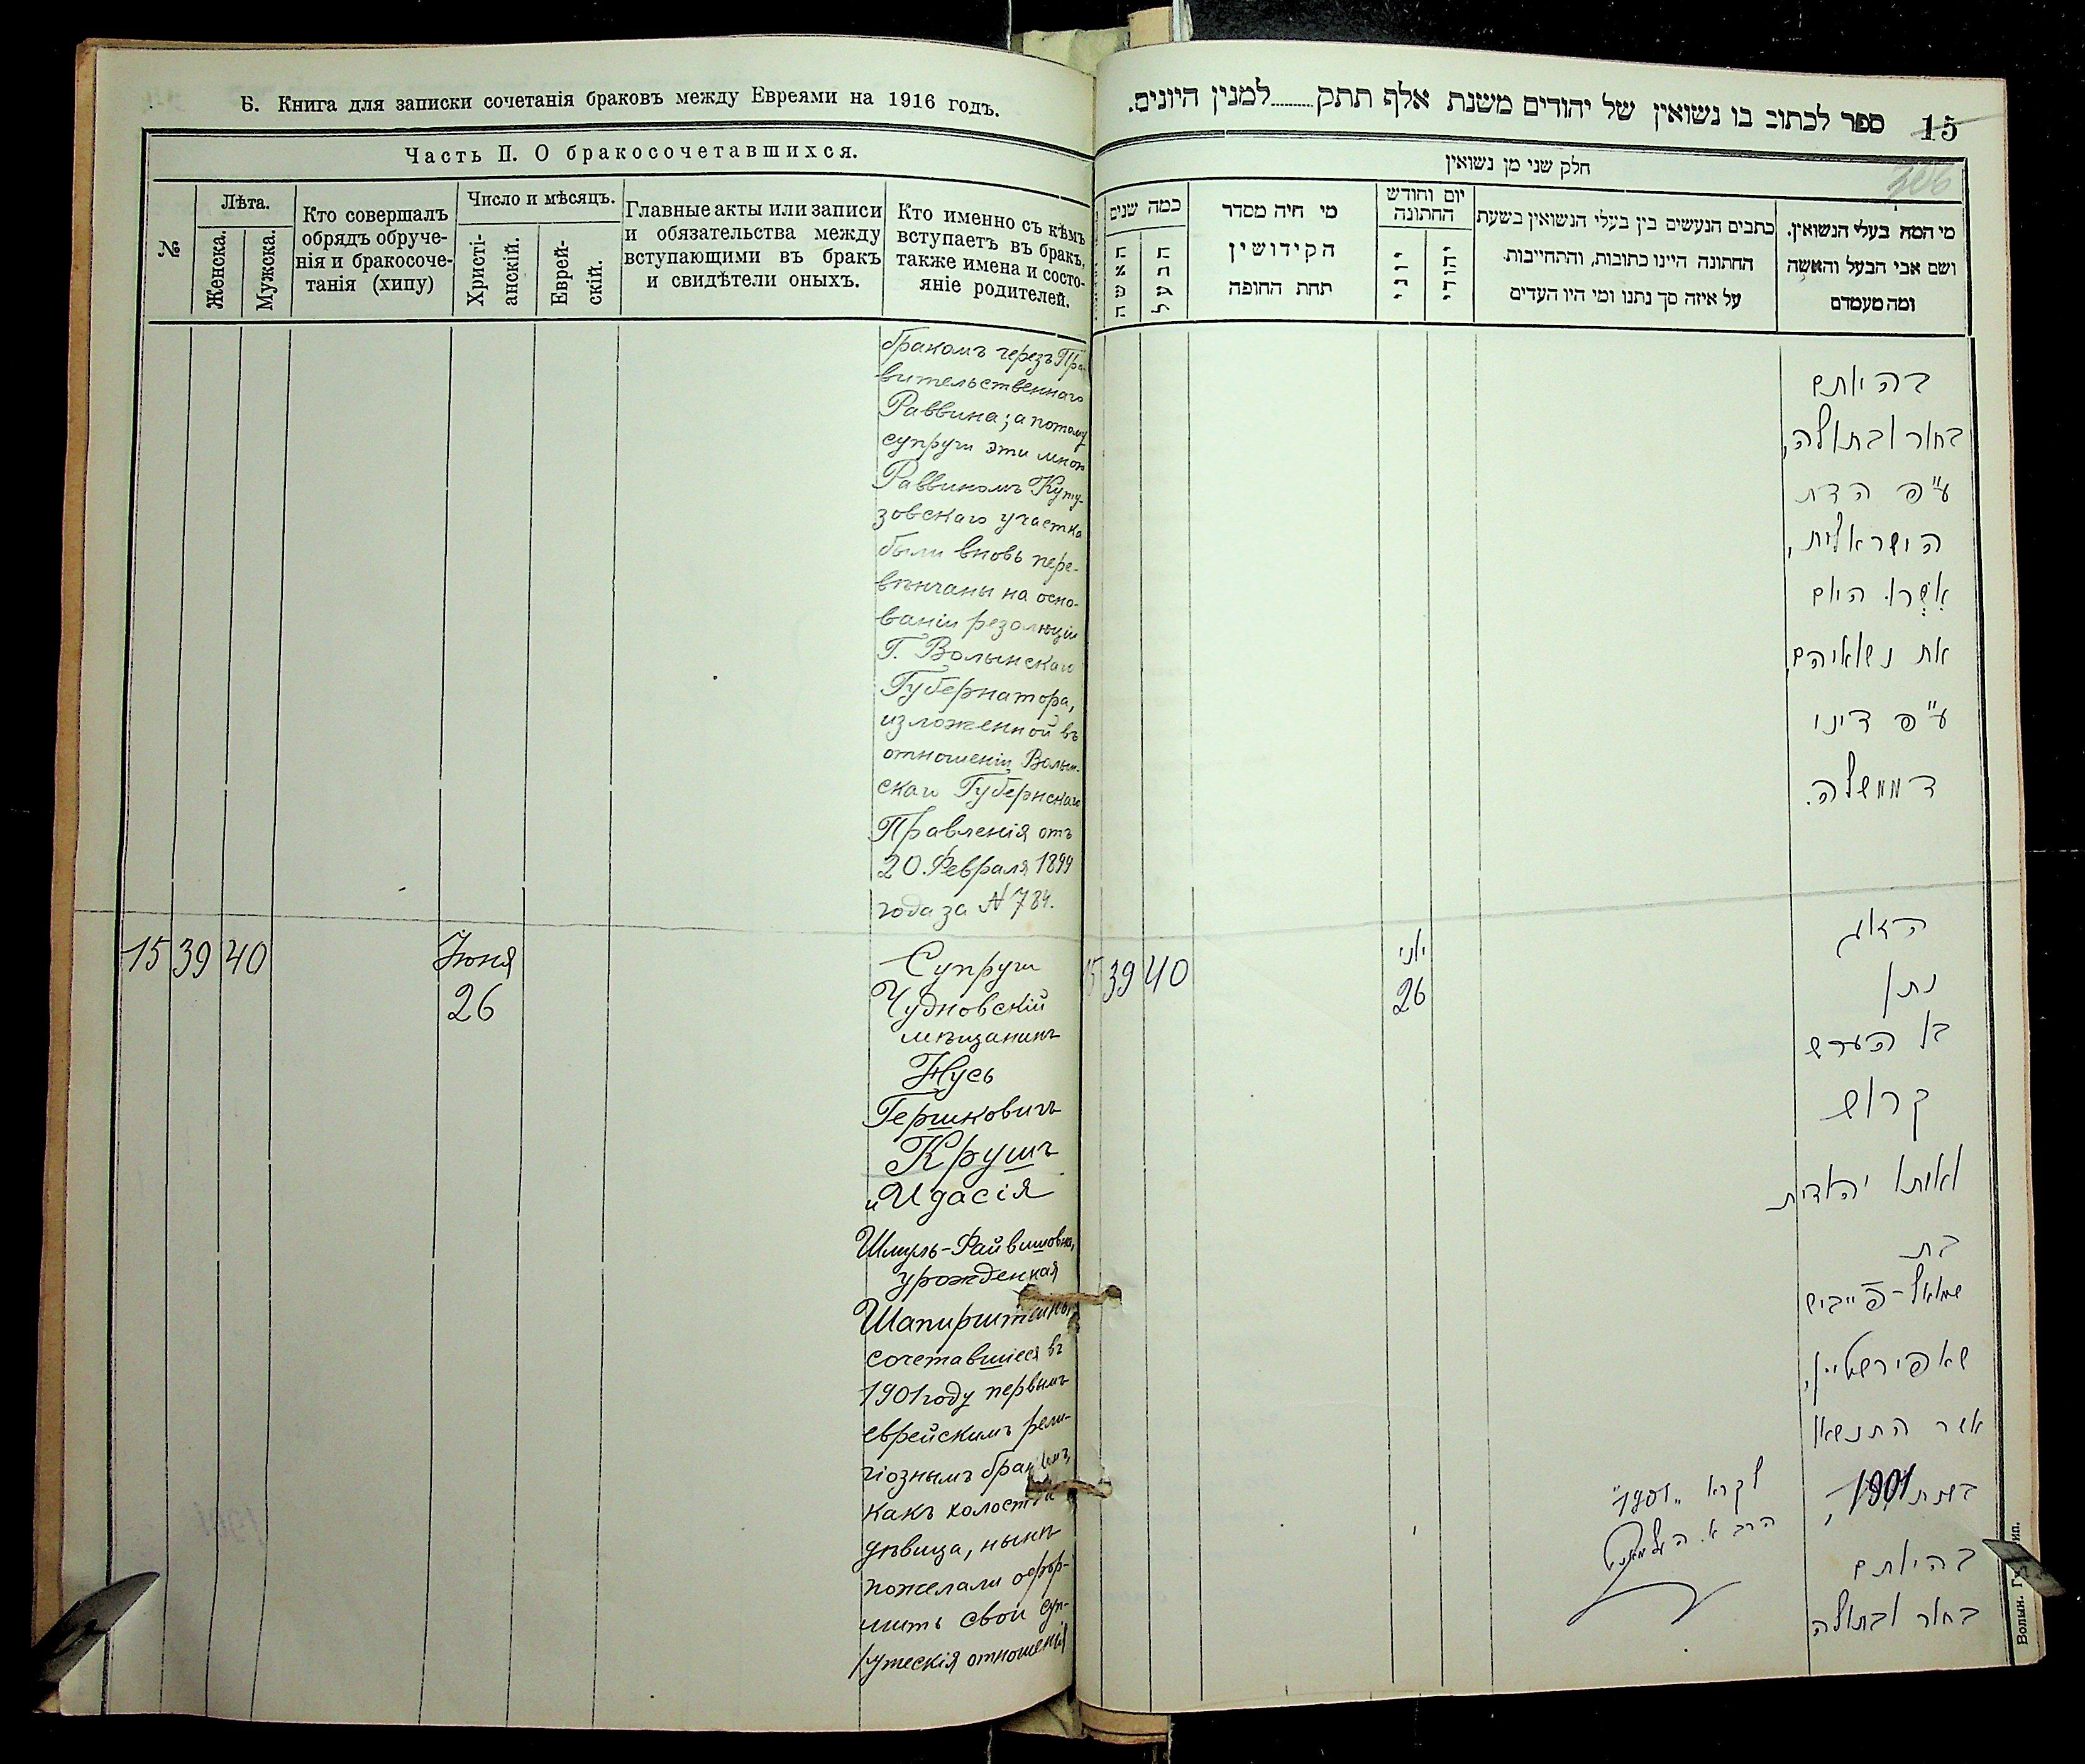 Б. Книга для записки сочетанія браковъ между Евреями на 1916 годъ.
Часть II. О бракосочетавшихся.
№
Лѣта.
Женска.
Мужска.
Кто совершалъ
обрядъ обруче-
нія и бракосоче-
танія (хипу)
Число и мѣсяцъ.
Христі-
анскій.
Еврей-
скій.
Главные акты или записи
и обязательства между
вступающими въ бракъ
и свидѣтели оныхъ.
Кто именно съ кѣмъ
вступаетъ въ бракъ,
также имена и состо-
яніе родителей.
бракомъ черезъ Пра-
вительственнаго
Раввина; а потому
супруги эти мною
Раввиномъ Куту-
зовскаго участка
были вновь пере-
вѣнчаны на осно-
ваніи резолюціи
Г. Волынскаго
Губернатора,
изложенной въ
отношеніи Волын-
скаго Губернскаго
Правленія отъ
20 Февраля 1899
года за № 784.
15 39 40
Іюня
26
Супруги
Чудновскій
мѣщанинъ
Нусь
Гершковичъ
Крушъ
и Идасія
Шмуль-Файвишовна,
урожденная
Шапирштейнъ,
сочетавшіеся въ
1901 году первымъ
еврейскимъ рели-
гіознымъ бракомъ,
какъ холостъ и
дѣвица, нынѣ
пожелали офор-
мить свои суп-
ружескія отношенія
ספר לכתוב בו נשואין של יהודים משנת אלף תתק.........למנין היונים.
15
306
חלק שני מן נשואין
כמה שנים
האשה
הבעל
מי היה מסדר
הקידושין
תחת החופה
יום וחודש
החתונה
יוני
יהודי
כתבים הנעשים בין בעלי הנשואין בשעת
החתונה היינו כתובות, והתחייבות
על איזה סך נתנו ומי היו העדים
מי המה בעלי הנשואין.
ושם אבי הבעל והאשה
ומה מעמדם
בהיותם
בחור ובתולה,
ע"פ הדת
הישראלית,
אִשְּׁרוּ היום
את נשואיהם
ע"פ דיני
הממשלה.
15 39 40
יוני
26
הזוג
נתן
בן הערש
קרוש
וזוגתו יהודית
בת
שמואל-פייביש
שאפירשטיין,
אשר התנשאו
בשנת 1901,
בהיותם
בחור ובתולה
לקרא "1901"
הרב א.
Волын. Г. Тип.